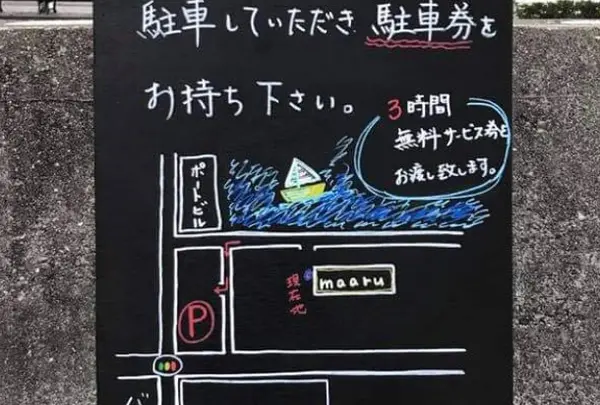 駐車していただき駐車券を
お持ち下さい。
3時間
無料サービス券を
お渡し致します。
ポートビル
maaru
現在地
P
バ